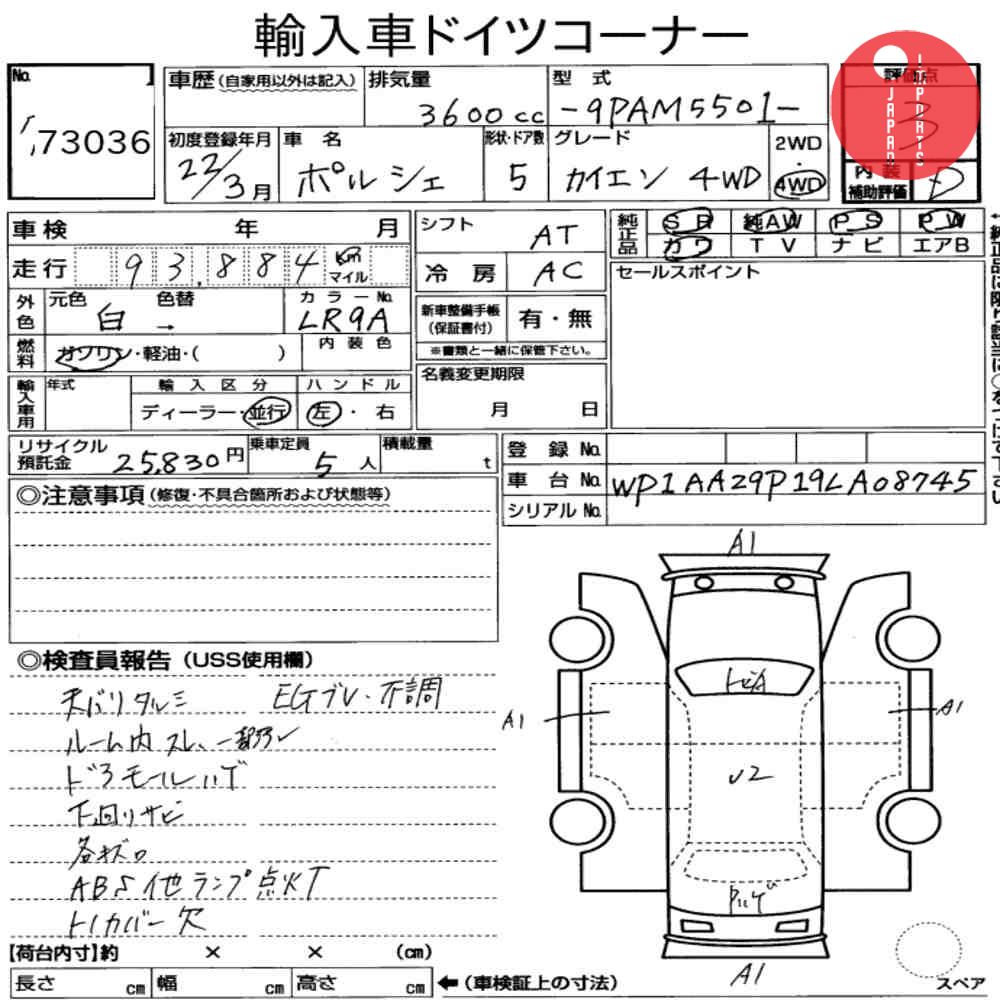 輸入車ドイツコーナー
No.
73036
車歴 (自家用以外は記入)
排気量
3600 cc
型 式
-9PAM5501-
評価点
3
JAPAN IMPORTS
初度登録年月
22/3月
車 名
ポルシェ
形状・ドア数
5
グレード
カイエン 4WD
2WD
・
4WD
内 装
補助評価
D
車検 年 月
走行 93,884 km マイル
外色 元色 白 色替 →
カラーNo.
LR9A
燃料 ガソリン・軽油・( )
内 装 色
輸入車用 年式
輸 入 区 分
ディーラー・並行
ハ ン ド ル
左・右
シフト AT
冷 房 AC
新車整備手帳
(保証書付)
有・無
※書類と一緒に保管下さい。
名義変更期限
月 日
純正品 SR 純AW PS PW
カワ TV ナビ エアB
セールスポイント
←純正品に限り該当に○をつけて下さい
リサイクル
預託金 25,830円
乗車定員
5 人
積載量
t
登 録 No.
車 台 No. WP1AA29P19LA08745
シリアル No.
◎注意事項 (修復・不具合箇所および状態等)
◎検査員報告 (USS使用欄)
天バリタルミ EGブレ・不調
ルーム内スレ、
ドアモールハゲ
下回りサビ
各キズ
ABS他ランプ点灯
トノカバー欠
A1
トビA
A1
A1
U2
A1
【荷台内寸】約 × × (cm)
長さ cm 幅 cm 高さ cm ←(車検証上の寸法)
スペア